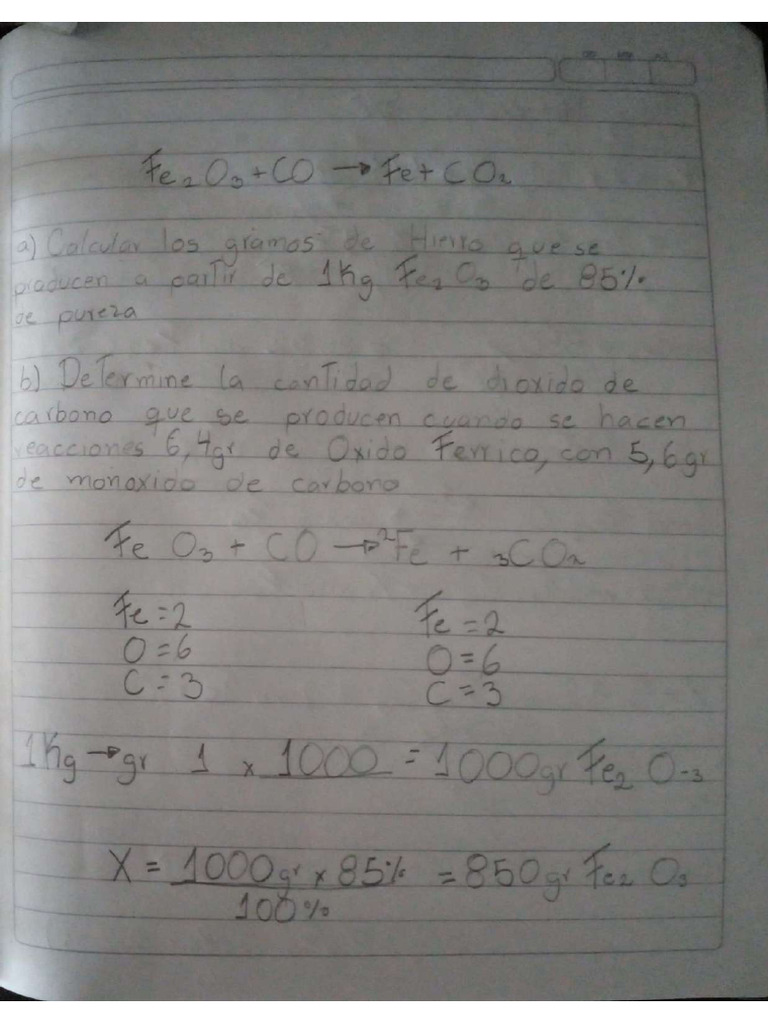 Fe₂O₃ + CO → Fe + CO₂
a) Calcular los gramos de Hierro que se
producen a partir de 1Kg Fe₂O₃ de 85%
de pureza
b) Determine la cantidad de dioxido de
carbono que se producen cuando se hacen
reacciones 6,4gr de Oxido Ferrico, con 5,6gr
de monoxido de carbono
Fe O₃ + CO → ²Fe + ₃CO₂
Fe = 2 Fe = 2
O = 6 O = 6
C = 3 C = 3
1Kg → gr 1 x 1000 = 1000gr Fe₂ O-₃
X = 1000gr x 85% = 850gr Fe₂ O₃
100%